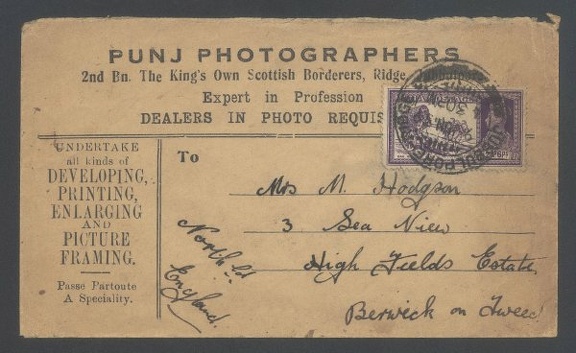 PUNJ PHOTOGRAPHERS
2nd Bn. The King's Own Scottish Borderers, Ridge
Expert in Profession
DEALERS IN PHOTO REQUIS
UNDERTAKE
all kinds of
DEVELOPING,
PRINTING,
ENLARGING
AND
PICTURE
FRAMING.
Passe Partoute
A Speciality.
To
Mrs M. Hodgson
3 Sea View
High Fields Estate.
Berwick on Tweed
North'ld
England.